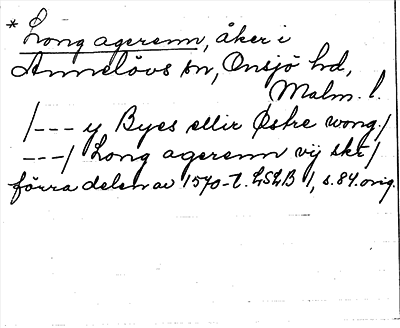 * Long agerenn, åker i
Annelövs sn, Onsjö hd,
Malm. l.
/--- y Byes ellir Østre wong./
---/ Long agerenn vij skr/
förra delen av 1570-t. LSLB 1, s. 84. orig.